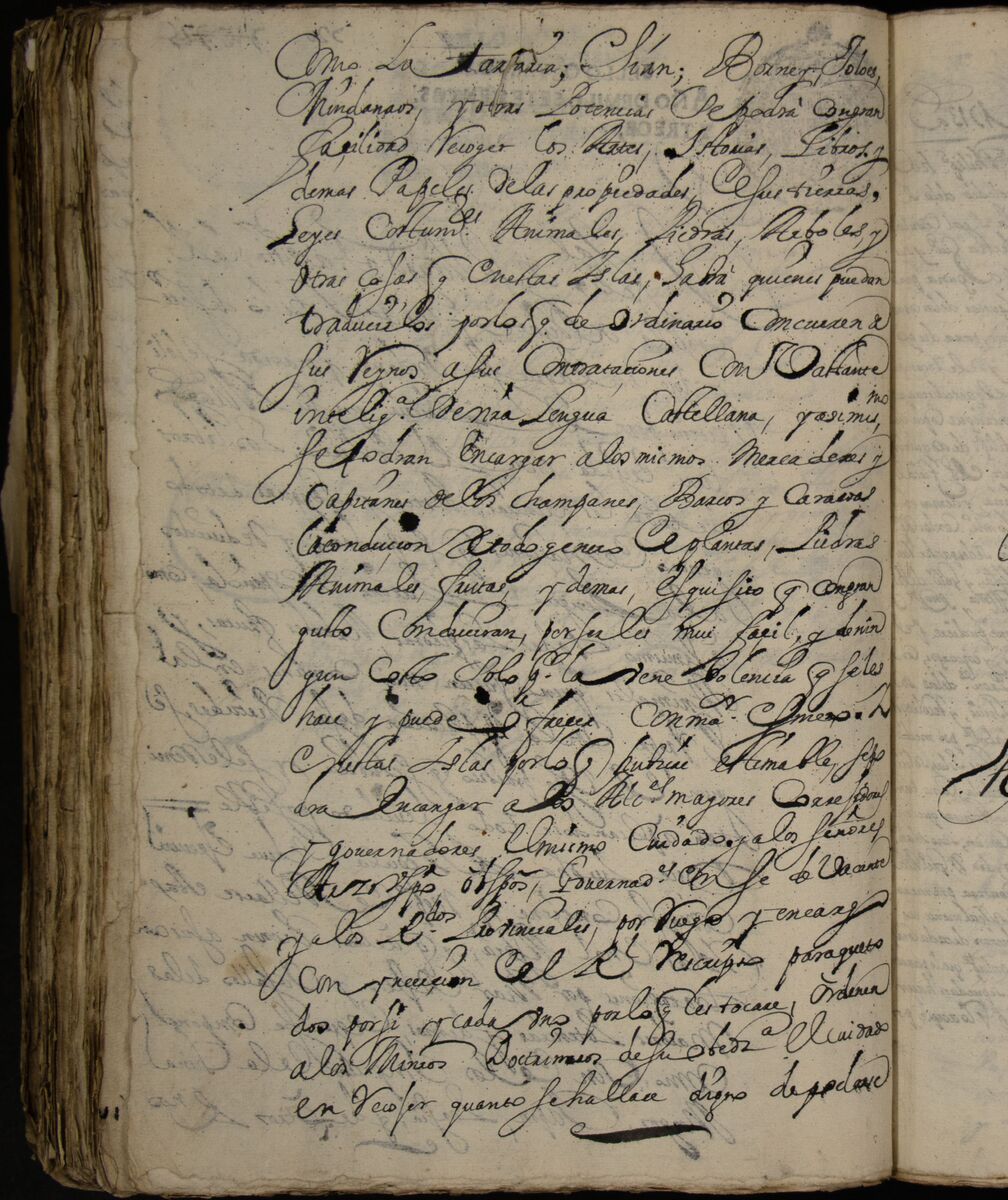 Como La tartaria; Chin; Borney, Joloes,
Mindanaos, y otras Potencias Se podrà Con gran
facilidad recoger los Artes, Istorias, Libros y
demas Papeles de las propiedades, de sus tierras,
Leyes Costumb.es Animales, Piedras, Arboles, y
otras cosas q en estas Islas, habrà quienes puedan
traducirlos por los q. de ordinario Concurren a
sus Reynos a sus Contrataciones Con Bastante
intelig.a de nra Lengua Castellana, y assimis.mo
se Podran Encargar a los mismos Mercaderes y
Capitanes de los Champanes, Barcos y
la conducion de todo genero de plantas, Piedras
Animales, frutas, y demas, esquisito q con gran
gusto Conduciran, por serles mui facil, y de nin
gun Costo Solo q.e la venebolencia q se les
hace y puede ofrecer
en estas Islas por lo q hubiere estimable, se po
dra Encargar a los Alc.es mayores Corregidores
y governadores el mismo Cuidado, y a los Señores
Arzobspo, obspos, Governad.es en Se de Vacante
y a los R.dos Provinciales, por Ruego y encargo
con del R.l rescripto para que to
dos por si y cada uno por lo q les tocare, ordenen
a los Minros Doctrineros de su obed.a El cuidado
en recojer quanto se hallare digno de